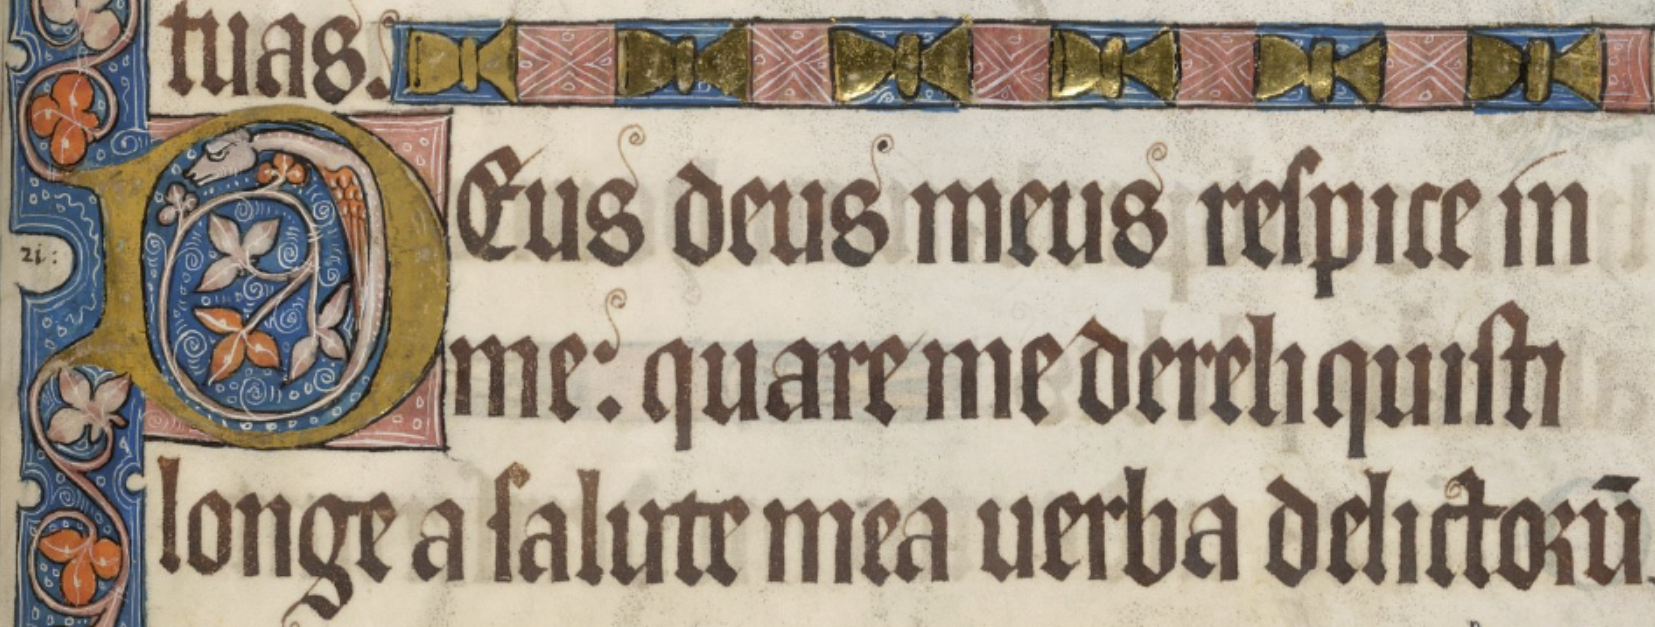 tuas.
DEus deus meus respice in
21:
me: quare me dereliquisti
longe a salute mea uerba delictorū